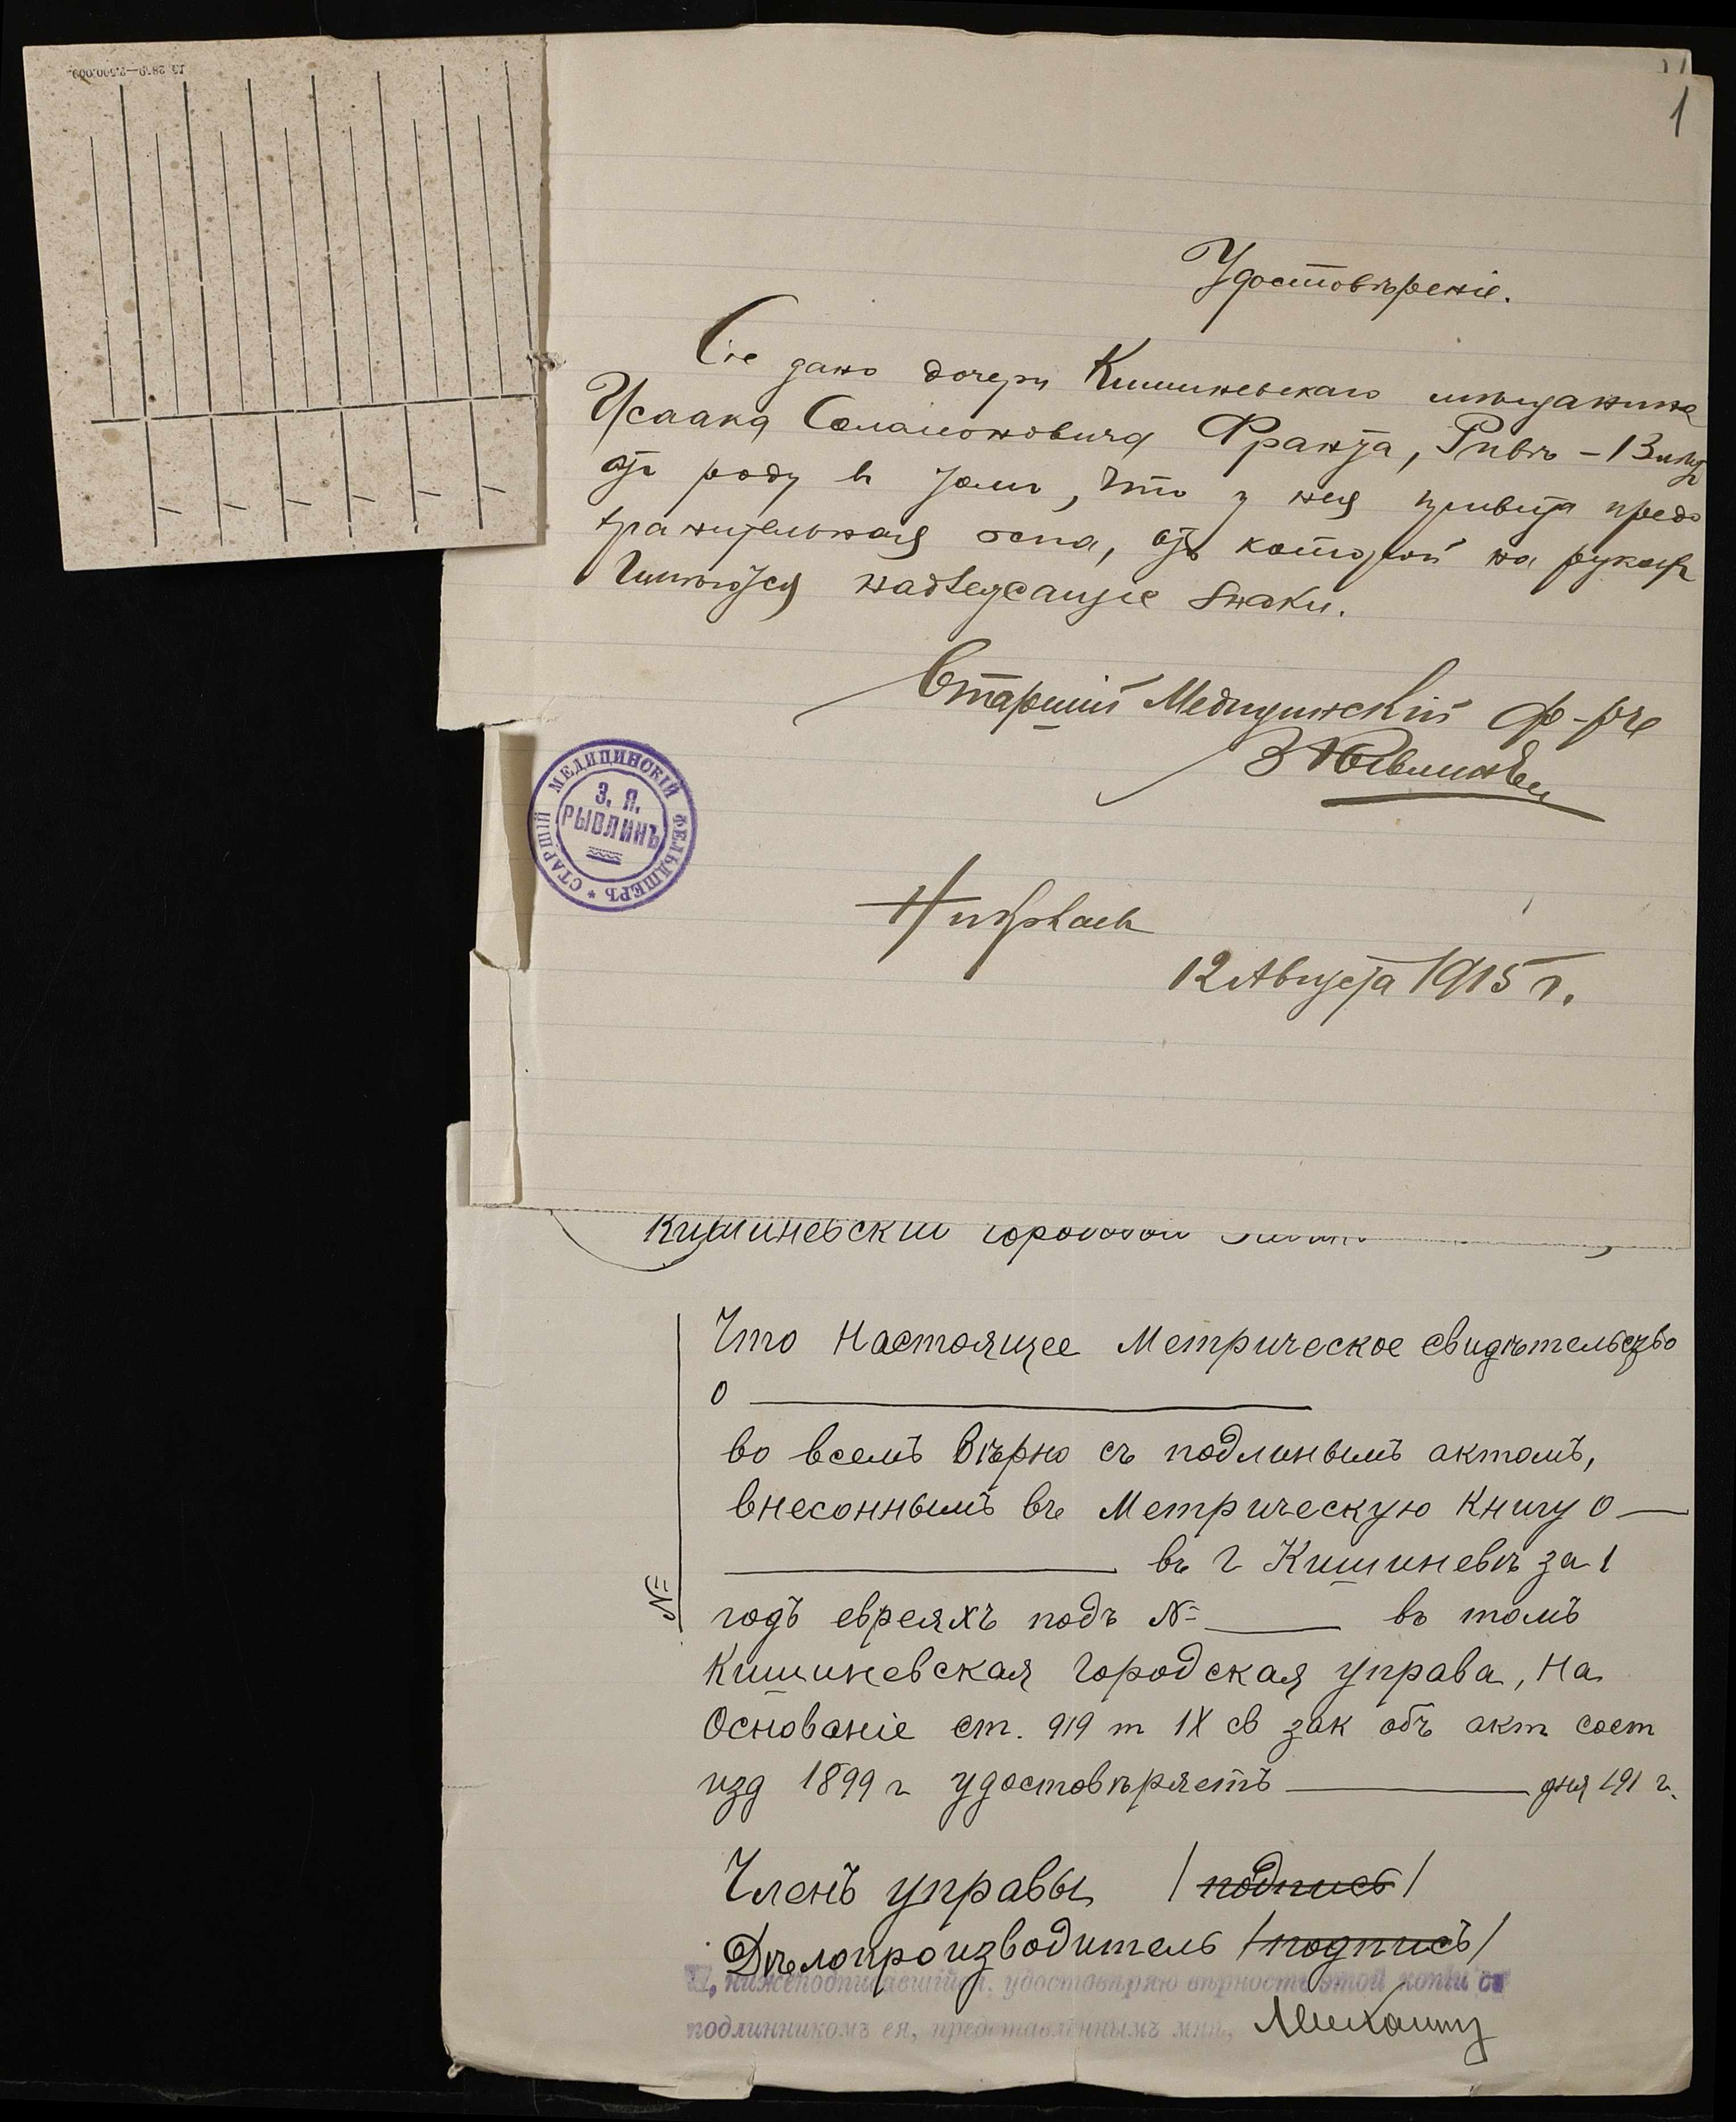 1
Удостовѣреніе.
Сіе дано дочери Кишиневскаго мѣщанина
Исаака Соламоновича Франта, Ривѣ – 13 лѣтъ
отъ роду въ томъ, что у нея привита предо
хранительная оспа, отъ которой на рукахъ
имѣются надлежащіе знаки.
Старшій Медицинскій ф-ръ
З Рывлинъ
СТАРШІЙ МЕДИЦИНСКІЙ ФЕЛЬДШЕРЪ *
З. Я.
РЫВЛИНЪ
12 Августа 1915 г.
Кишиневскій городовой
Что Настоящее Метрическое свидѣтельство
о
во всемъ вѣрно съ подлинымъ актомъ,
внесоннымъ въ Метрическую Книгу о
въ г Кишиневѣ за 1
годъ евреяхъ подъ № въ томъ
Кишиневская Городская управа, На
Основаніе ст. 919 т IX св зак объ акт сост
изд 1899 г удостовѣряетъ дня 191 г.
№
Членъ управы /подпись/
Дѣлопроизводитель /подписъ/
Я, нижеподписавшійся, удостовѣряю вѣрность этой копіи съ
подлинникомъ ея, представленнымъ мнѣ,